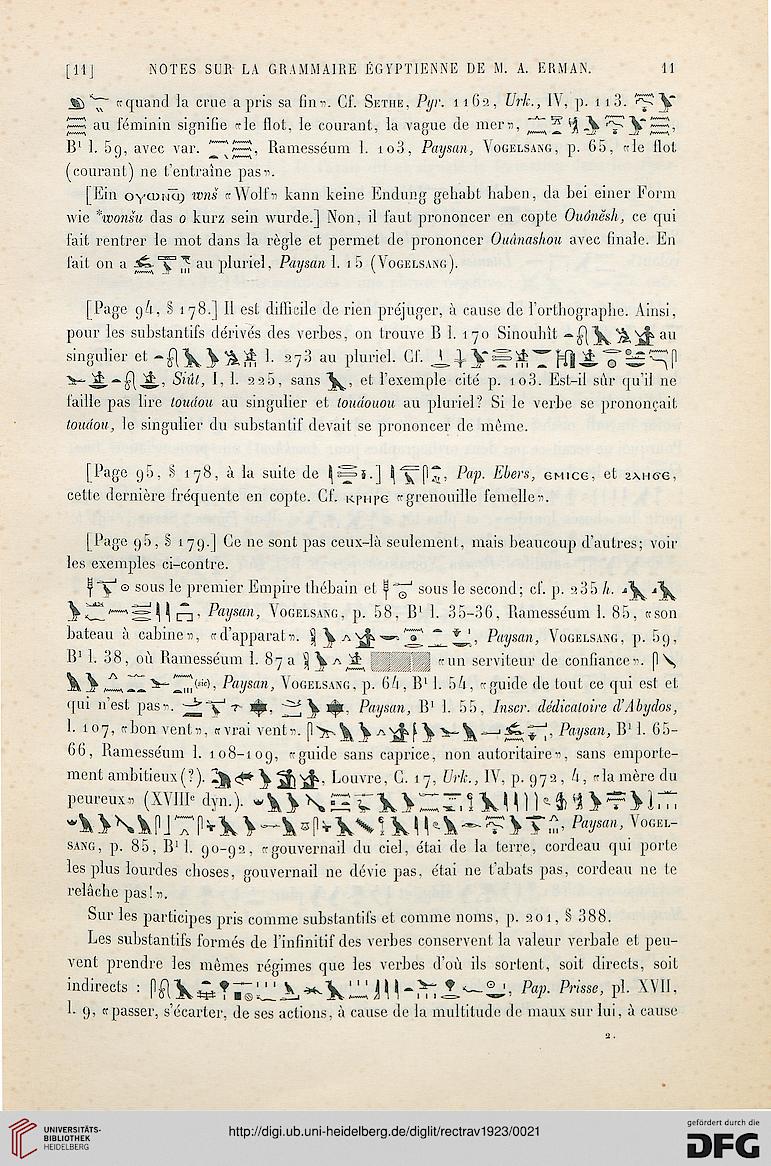 [11] NOTES SUR LA GRAMMAIRE ÉGYPTIENNE DE M. A. ERMAN. 11
«quand la crue a pris sa fin». Cf. Sethe, Pyr. 1162, Urk., IV, p. 113.
au féminin signifie «le flot, le courant, la vague de mer»,
B¹ l. 59, avec var. , Ramesséum l. 103, Paysan, Vogelsang, p. 65, «le flot
(courant) ne t'entraîne pas».
[Ein ⲟⲩⲱⲛϣ̄ wnš «Wolf» kann keine Endung gehabt haben, da bei einer Form
wie *wonšu das o kurz sein wurde.] Non, il faut prononcer en copte Ouônĕsh, ce qui
fait rentrer le mot dans la règle et permet de prononcer Ouânashou avec finale. En
fait on a au pluriel, Paysan l. 15 (Vogelsang).
[Page 94, § 178.] Il est difficile de rien préjuger, à cause de l'orthographe. Ainsi,
pour les substantifs dérivés des verbes, on trouve B l. 170 Sinouhît au
singulier et l. 273 au pluriel. Cf.
, Siût, I, l. 225, sans , et l'exemple cité p. 103. Est-il sûr qu'il ne
faille pas lire touáou au singulier et touáouou au pluriel? Si le verbe se prononçait
touáou, le singulier du substantif devait se prononcer de même.
[Page 95, § 178, à la suite de .] , Pap. Ebers, ⲉⲙⲓⲥⲉ, et ϩⲗⲏϭⲉ,
cette dernière fréquente en copte. Cf. ⲕⲣⲏⲣⲉ «grenouille femelle».
[Page 95, § 179.] Ce ne sont pas ceux-là seulement, mais beaucoup d'autres; voir
les exemples ci-contre.
sous le premier Empire thébain et sous le second; cf. p. 235 h.
, Paysan, Vogelsang, p. 58, B¹ l. 35-36, Ramesséum l. 85, «son
bateau à cabine», «d'apparat». , Paysan, Vogelsang, p. 59,
B¹ l. 38, où Ramesséum l. 87 a «un serviteur de confiance».
(sic), Paysan, Vogelsang, p. 64, B¹ l. 54, «guide de tout ce qui est et
qui n'est pas». , Paysan, B¹ l. 55, Inscr. dédicatoire d'Abydos,
l. 107, «bon vent», «vrai vent». , Paysan, B¹ l. 65-
66, Ramesséum l. 108-109, «guide sans caprice, non autoritaire», sans emporte-
ment ambitieux(?). , Louvre, C. 17, Urk., IV, p. 972, 4, «la mère du
peureux» (XVIIIᵉ dyn.).
, Paysan, Vogel-
sang, p. 85, B¹ l. 90-92, «gouvernail du ciel, étai de la terre, cordeau qui porte
les plus lourdes choses, gouvernail ne dévie pas, étai ne t'abats pas, cordeau ne te
relâche pas!».
Sur les participes pris comme substantifs et comme noms, p. 201, § 388.
Les substantifs formés de l'infinitif des verbes conservent la valeur verbale et peu-
vent prendre les mêmes régimes que les verbes d'où ils sortent, soit directs, soit
indirects : , Pap. Prisse, pl. XVII,
l. 9, «passer, s'écarter, de ses actions, à cause de la multitude de maux sur lui, à cause
2.
UNIVERSITÄTS-
BIBLIOTHEK
HEIDELBERG
http://digi.ub.uni-heidelberg.de/diglit/rectrav1923/0021
gefördert durch die
DFG